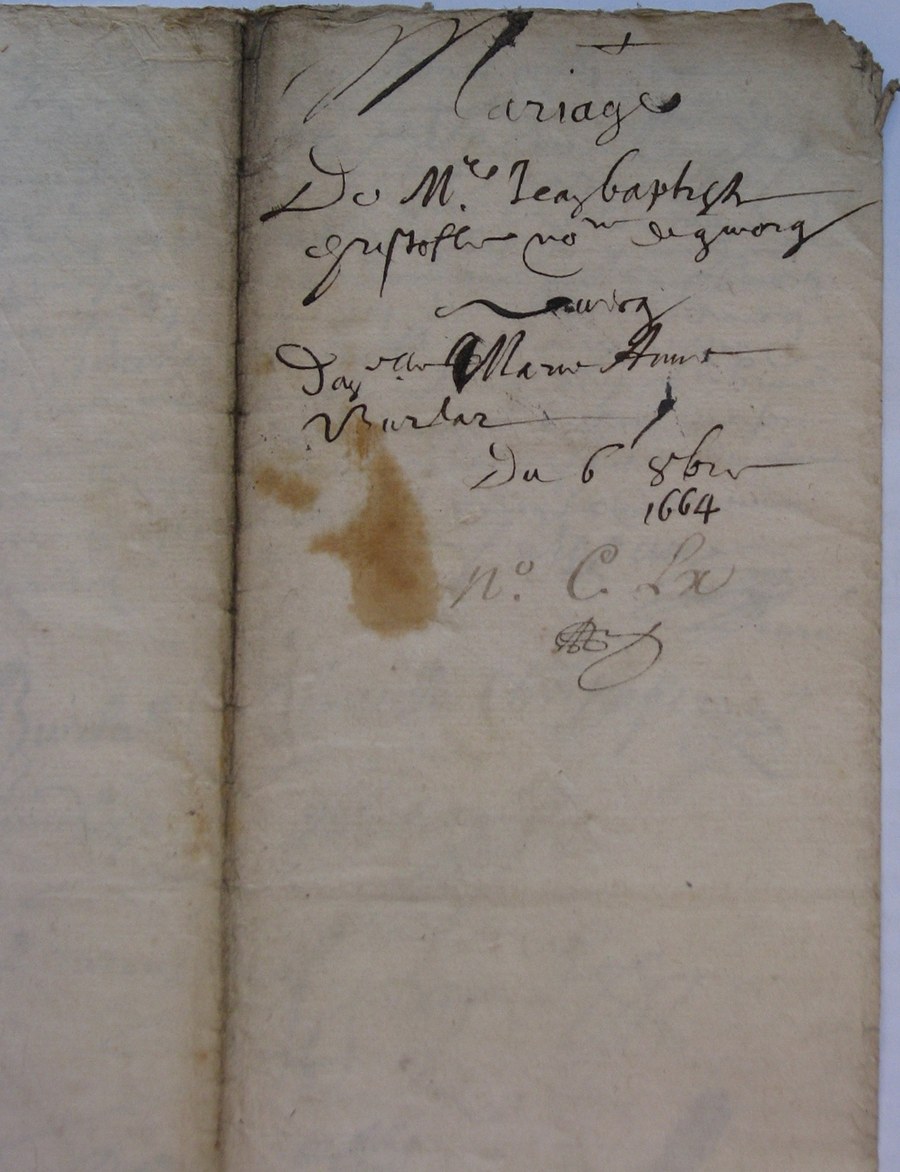 Mariage
De M.re Jean baptiste
cristofle no.re de
avec
Dam.elle Marie Anne
Du 6 8bre
1664
n.o C. Lx